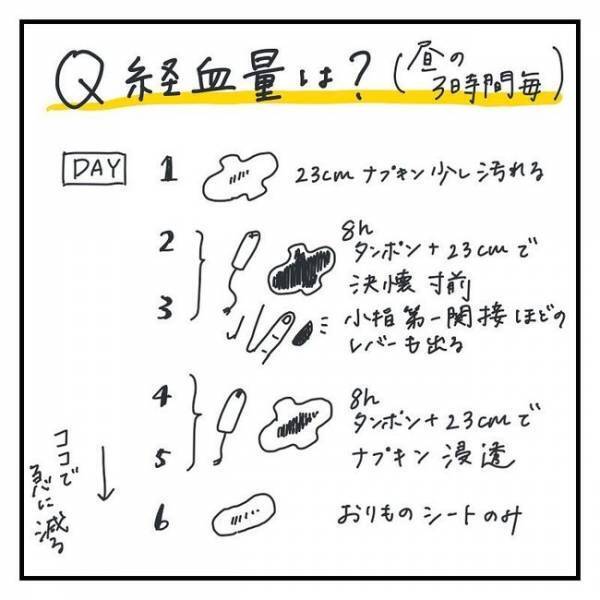 Q 経血量は?(昼の3時間毎)
DAY
1 23cm ナプキン少し汚れる
2
3
8h
タンポン+23cmで
決壊寸前
小指第一関接ほどの
レバーも出る
4
5
8h
タンポン+23cmで
ナプキン浸透
6 おりものシートのみ
ココで
急に減る